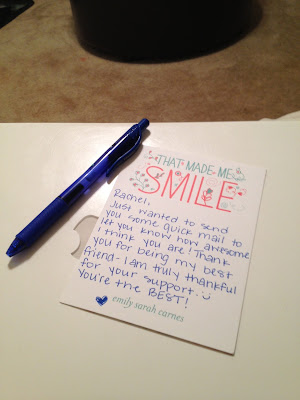 THAT MADE ME
SMILE
Rachel,
Just wanted to send
you some quick mail to
let you know how awesome
I think you are! Thank
you for being my best
friend- I am truly thankful
for your support. :)
You're the BEST!
emily sarah carnes